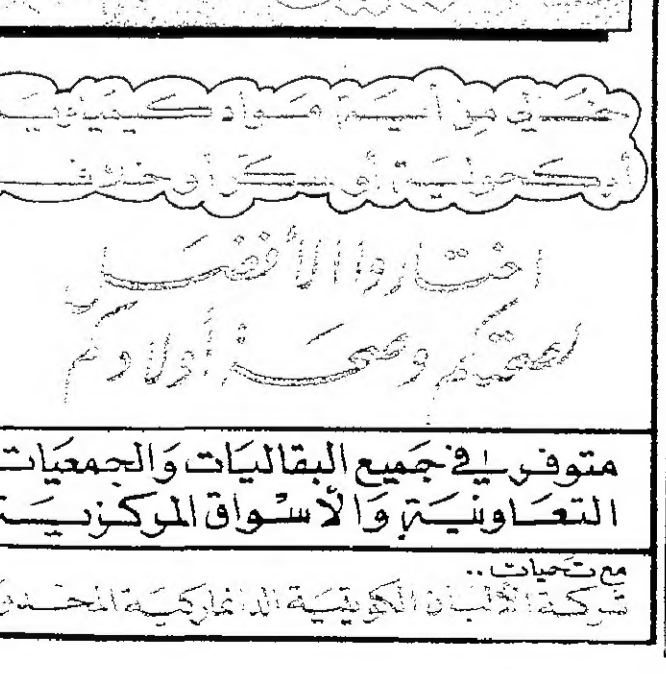 خالي من أية مواد كيمياوية
أو كحولية أو سكر أو خلافه
اختاروا الأفضل
لصحتكم وصحة أولادكم
متوفر في جميع البقاليات والجمعيات
التعاونية والأسواق المركزية
مع تحيات ..
شركة الألبان الكويتية الدانماركية المحدودة